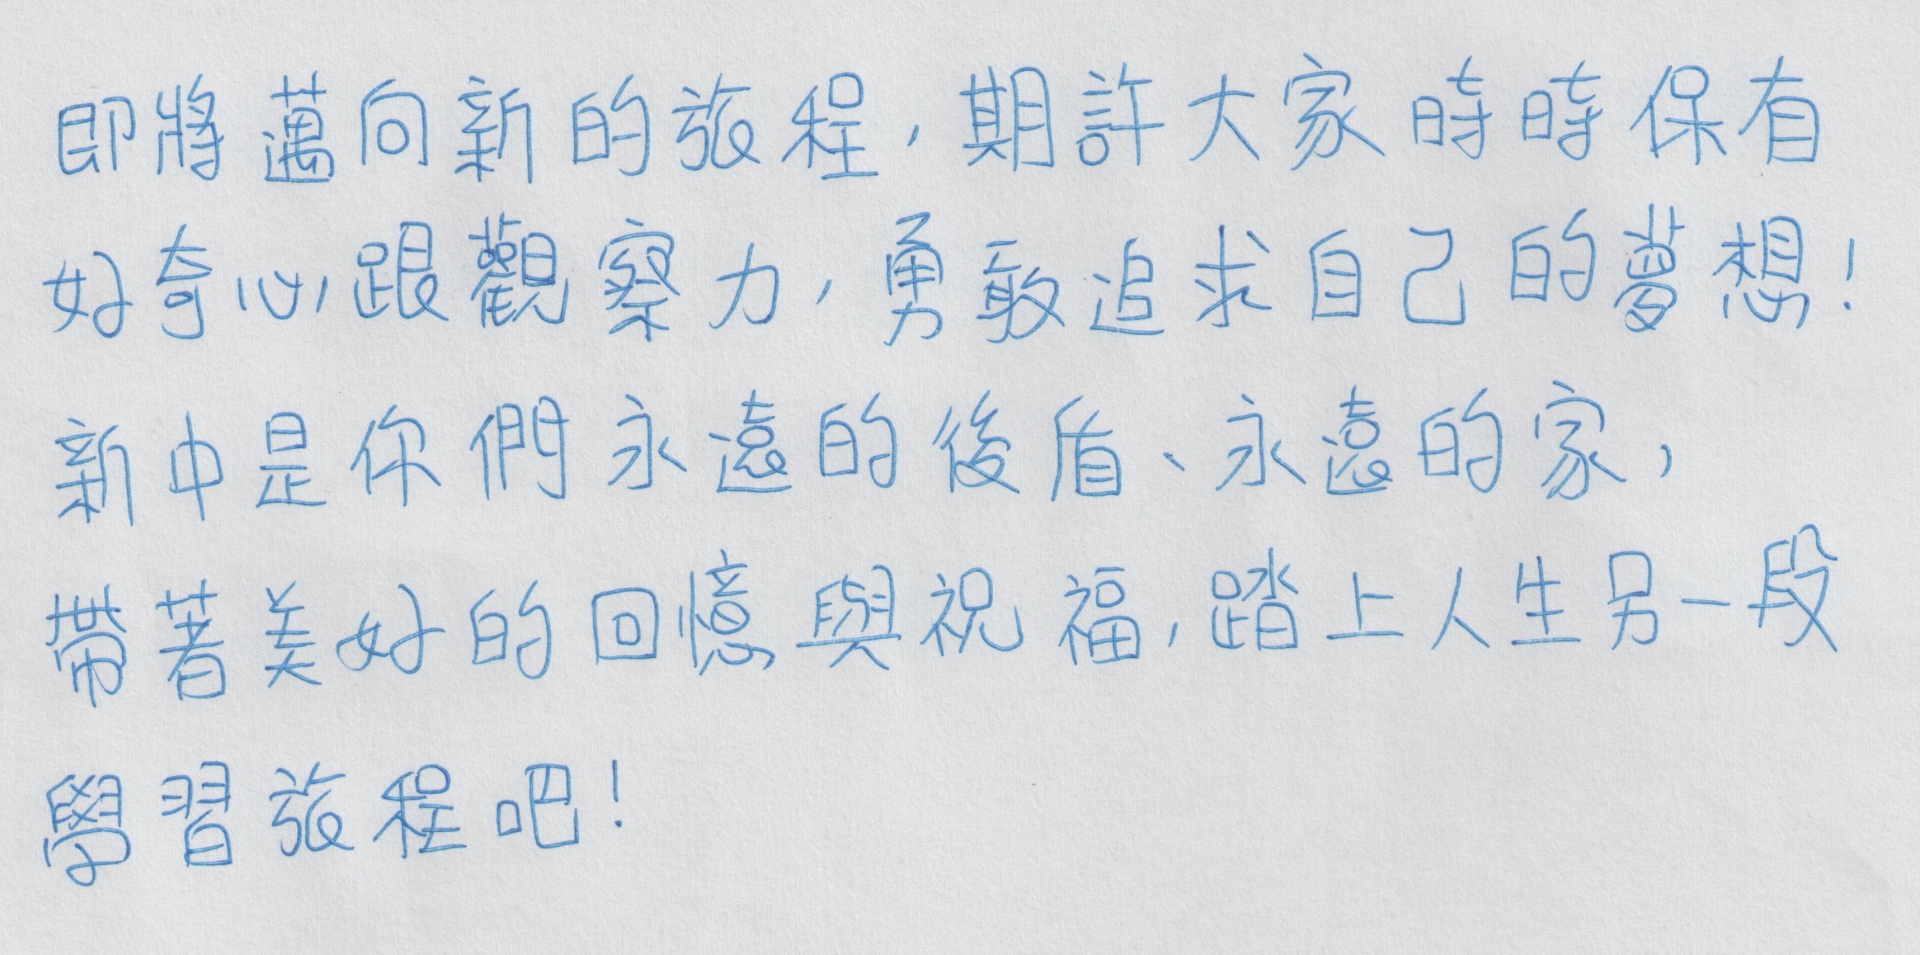 即將邁向新的旅程,期許大家時時保有
好奇心跟觀察力,勇敢追求自己的夢想!
新中是你們永遠的後盾、永遠的家,
帶著美好的回憶與祝福,踏上人生另一段
學習旅程吧!